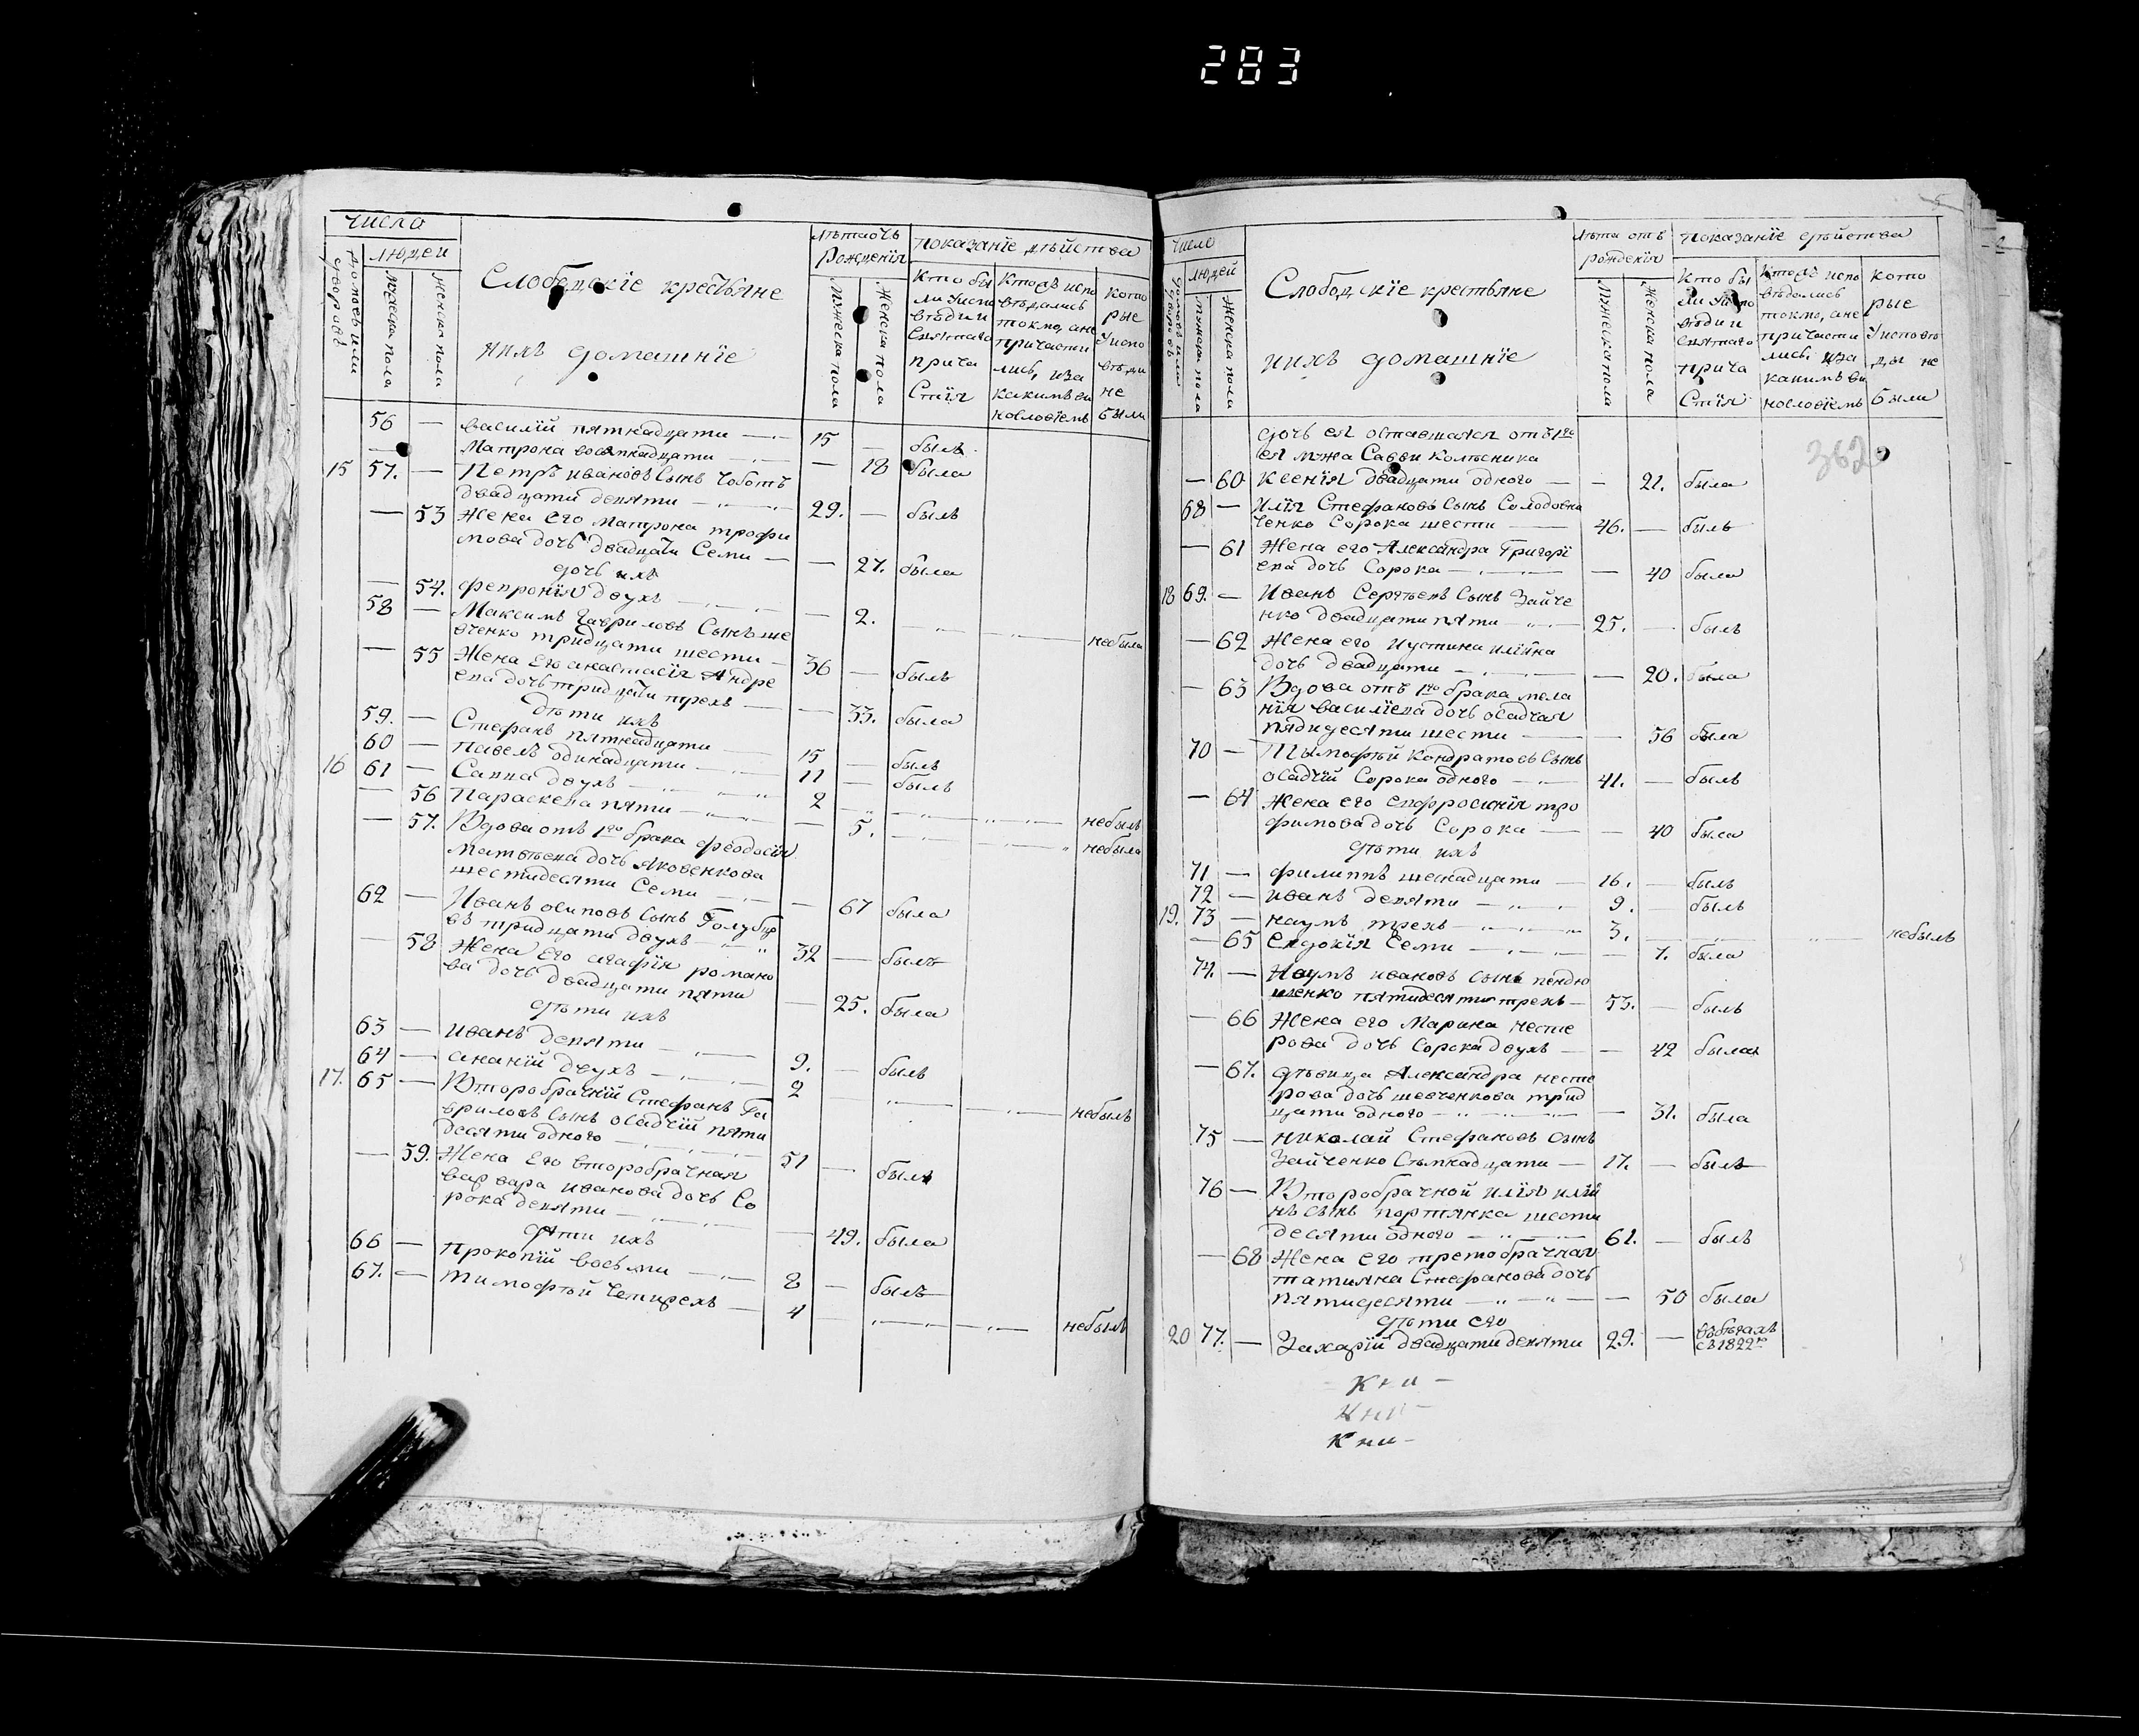 283
числа
людей
домовъ или дворовъ
мужеска пола
женска пола
Слободскіе крестьяне
ихъ домашніе
лѣта отъ
рожденія
мужеска пола
женска пола
показаніе дѣйства
кто бы
ли у испо
вѣди и
святаго
прича
стія
кто съ испо
вѣдались
токмо, а не
причасти
лись, и за
какимъ ви
нословіемъ
кото
рые
у испо
вѣди
не
были
56 — василій пятнадцати — 15 — былъ
— Матрона восемнадцати — — 18 была
15 57. — Петръ ивановъ сынъ Чоботъ
двадцати девяти — 29. — былъ
— 53 Жена его Матрона трофи
мова дочь двадцати семи — — 27. была
дочь ихъ
— 54. февронія двухъ — — 2. небыла
58 — Максимъ гавриловъ сынъ ше
вченко тридцати шести — 36 — былъ
— 55 Жена его анастасія Андре
ева дочь тридцати трехъ — — 33. была
дѣти ихъ
59. — Стефанъ пятнадцати — 15 — былъ
60 — павелъ одинадцати — 11 — былъ
16 61 — Савва двухъ — 2 небылъ
— 56 Параскева пяти — — 5. небыла
— 57. Вдова отъ 1го брака феодосія
матвѣева дочь яковенкова
шестидесяти семи — — 67 была
62 — Иванъ осиповъ сынъ Голубцо
въ тридцати двухъ — 32 — былъ
— 58 Жена его агафія романо
ва дочь двадцати пяти — 25. была
дѣти ихъ
63 — иванъ девяти — 9. — былъ
64 — ананій двухъ — 2 — небылъ
17. 65 — Второбрачній Стефанъ Га
вриловъ сынъ осадчій пяти
десяти одного — 51 — былъ
— 59. Жена его второбрачная
варвара иванова дочь Со
рока девяти — — 49. была
дѣти ихъ
66 — прокопій восьми — 8 — былъ
67. — тимофѣй четирехъ — 4 — небылъ
числа
людей
домовъ или дворовъ
мужеска пола
женска пола
Слободскіе крестьяне
ихъ домашніе
лѣта отъ
рожденія
мужеска пола
женска пола
показаніе дѣйства
кто бы
ли у испо
вѣди и
святаго
прича
стія
кто съ испо
вѣдались
токмо, а не
причасти
лись, и за
какимъ ви
нословіемъ
кото
рые
у исповѣ
ды не
были
362
дочь ея оставшаяся отъ 1го
ея мужа Саввы Колѣсника
— 60 Ксенія двадцати одного — — 21. была
68 — Илія Стефановъ сынъ Солодовни
ченко Сорока шести — 46. — былъ
— 61 Жена его Александра Григорі
ева дочь Сорока — — 40 была
18 69. — Иванъ Сергѣевъ сынъ Зайче
нко двадцати пяти — 25. — былъ
— 62 Жена его иустина илійна
дочь двадцати — — 20. была
— 63 Вдова отъ 1го брака мела
нія василіева дочь осадчая
пядидесяти шести — — 56 была
70 — Тымофѣй Кондратовъ сынъ
осадчій Сорока одного — 41. — былъ
— 64 Жена его евфросинія тро
фимова дочь Сорока — — 40 была
дѣти ихъ
71 — филиппъ шеснадцати — 16. — былъ
72 — иванъ девяти — 9. — былъ
19. 73 — наумъ трехъ — 3. — небылъ
— 65 евдокія семи — — 7. была
74. — Наумъ ивановъ сынъ
пятидесяти трехъ — 53. — былъ
— 66 Жена его Марина несте
рова дочь Сорока двухъ — — 42 была
— 67. дѣвица Александра несте
рова дочь шевченкова трид
цати одного — — 31. была
75 — николай Стефановъ сынъ
Зайченко Семнадцати — 17. — былъ
76 — Второбрачной илія илій
нъ сынъ портянка шести
десяти одного — 61. — былъ
— 68 Жена его третобрачная
татияна Стефанова дочь
пятидесяти — — 50 была
дѣти его
20 77. — Захарій двадцати девяти 29. — въ бѣгахъ
съ 1822го
Кни —
Кни —
Кни —